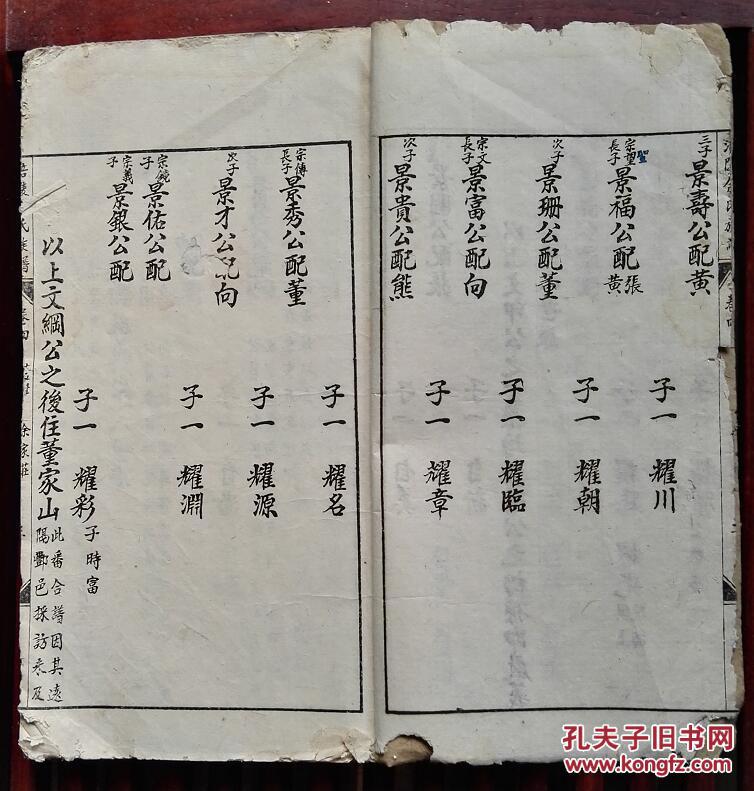 三子景壽公配黃
宗望聖長子景福公配張黃
子一 耀川
次子景珊公配董
子一 耀朝
宗文長子景富公配向
子一 耀臨
次子景貴公配熊
子一 耀章
宗傳長子景秀公配董
子一 耀名
次子景才公配向
子一 耀源
宗鏡子景佑公配
子一 耀淵
宗義子景銀公配
子一 耀彩 子時富
以上文綱公之後住董家山
此番合譜因其遠
隔酆邑採訪未及
氏族譜
卷四
徐家莊
孔夫子旧书网
www.kongfz.com